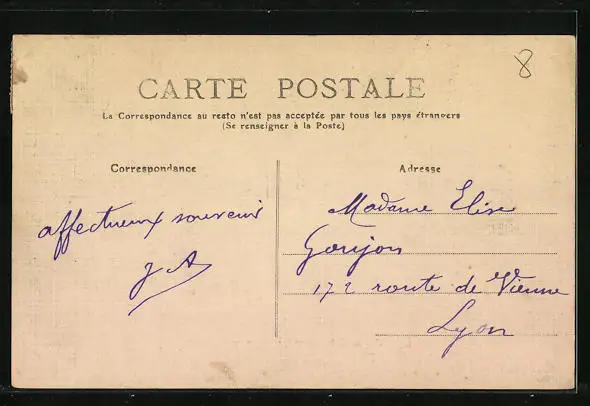 8
CARTE POSTALE
La Correspondance au resto n'est pas acceptée par tous les pays étrangers
(Se renseigner à la Poste)
Correspondance
affectueux souvenir
J A
Adresse
Madame Elise
Goujon
172 route de Vienne
Lyon